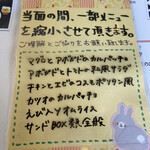 当面の間、一部メニュー
を縮小させて頂きます。
ご理解とご協力をお願い致します。
マグロとアボカドのカルパッチョ
アボカドとトマトの和風サラダ
チキンとエビのコスモポリタン風
カツオのカルパッチョ
えび入りオムライス
サンドBOX類全般